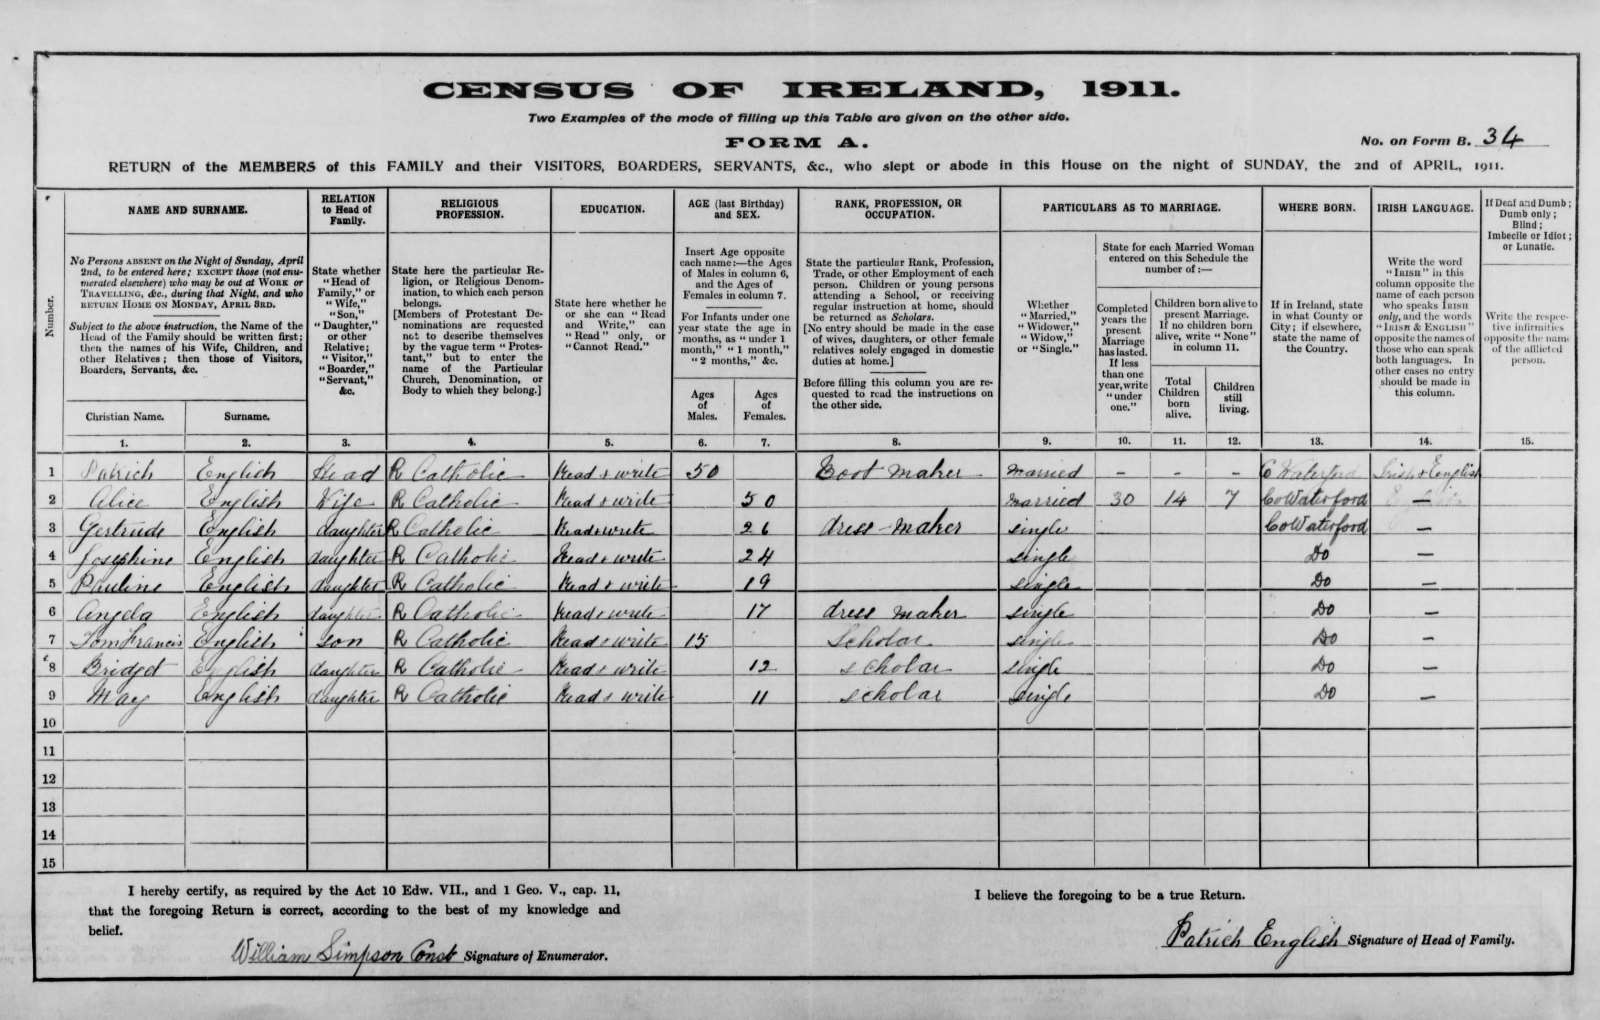 CENSUS OF IRELAND, 1911.
Two Examples of the mode of filling up this Table are given on the other side.
FORM A.
No. on Form B. 34
RETURN of the MEMBERS of this FAMILY and their VISITORS, BOARDERS, SERVANTS, &c., who slept or abode in this House on the night of SUNDAY, the 2nd of APRIL, 1911.
Number.
NAME AND SURNAME.
No Persons ABSENT on the Night of Sunday, April
2nd, to be entered here; EXCEPT those (not enu-
merated elsewhere) who may be out at WORK or
TRAVELLING, &c., during that Night, and who
RETURN HOME ON MONDAY, APRIL 3RD.
Subject to the above instruction, the Name of the
Head of the Family should be written first;
then the names of his Wife, Children, and
other Relatives; then those of Visitors,
Boarders, Servants, &c.
Christian Name.
Surname.
RELATION
to Head of
Family.
State whether
"Head of
Family," or
"Wife,"
"Son,"
"Daughter,"
or other
Relative;
"Visitor,"
"Boarder,"
"Servant,"
&c.
RELIGIOUS
PROFESSION.
State here the particular Re-
ligion, or Religious Denom-
ination, to which each person
belongs.
[Members of Protestant De-
nominations are requested
not to describe themselves
by the vague term "Protes-
tant," but to enter the
name of the Particular
Church, Denomination, or
Body to which they belong.]
EDUCATION.
State here whether he
or she can "Read
and Write," can
"Read" only, or
"Cannot Read."
AGE (last Birthday)
and SEX.
Insert Age opposite
each name:—the Ages
of Males in column 6,
and the Ages of
Females in column 7.
For Infants under one
year state the age in
months, as "under 1
month," "1 month,"
"2 months," &c.
Ages
of
Males.
Ages
of
Females.
RANK, PROFESSION, OR
OCCUPATION.
State the particular Rank, Profession,
Trade, or other Employment of each
person. Children or young persons
attending a School, or receiving
regular instruction at home, should
be returned as Scholars.
[No entry should be made in the case
of wives, daughters, or other female
relatives solely engaged in domestic
duties at home.]
Before filling this column you are re-
quested to read the instructions on
the other side.
PARTICULARS AS TO MARRIAGE.
Whether
"Married,"
"Widower,"
"Widow,"
or "Single."
State for each Married Woman
entered on this Schedule the
number of:—
Completed
years the
present
Marriage
has lasted.
If less
than one
year, write
"under
one."
Children born alive to
present Marriage.
If no children born
alive, write "None"
in column 11.
Total
Children
born
alive.
Children
still
living.
WHERE BORN.
If in Ireland, state
in what County or
City; if elsewhere,
state the name of
the Country.
IRISH LANGUAGE.
Write the word
"IRISH" in this
column opposite the
name of each person
who speaks IRISH
only, and the words
"IRISH & ENGLISH"
opposite the names of
those who can speak
both languages. In
other cases no entry
should be made in
this column.
If Deaf and Dumb;
Dumb only;
Blind;
Imbecile or Idiot;
or Lunatic.
Write the respec-
tive infirmities
opposite the name
of the afflicted
person.
1. 2. 3. 4. 5. 6. 7. 8. 9. 10. 11. 12. 13. 14. 15.
1 Patrick English Head R Catholic Read & write 50 Boot maker married - - - C Waterford Irish & English
2 Alice English Wife R Catholic Read & write 50 married 30 14 7 Co Waterford —
3 Gertrude English daughter R Catholic Read & write 26 dress-maker single Co Waterford —
4 Josephine English daughter R Catholic Read & write 24 single Do —
5 Pauline English daughter R Catholic Read & write 19 single Do —
6 Angela English daughter R Catholic Read & write 17 dress maker single Do —
7 Tom Francis English son R Catholic Read & write 15 Scholar single Do —
8 Bridget English daughter R Catholic Read & write 12 scholar single Do —
9 May English daughter R Catholic Read & write 11 scholar single Do —
10
11
12
13
14
15
I hereby certify, as required by the Act 10 Edw. VII., and 1 Geo. V., cap. 11,
that the foregoing Return is correct, according to the best of my knowledge and
belief.
William Simpson Const Signature of Enumerator.
I believe the foregoing to be a true Return.
Patrick English Signature of Head of Family.